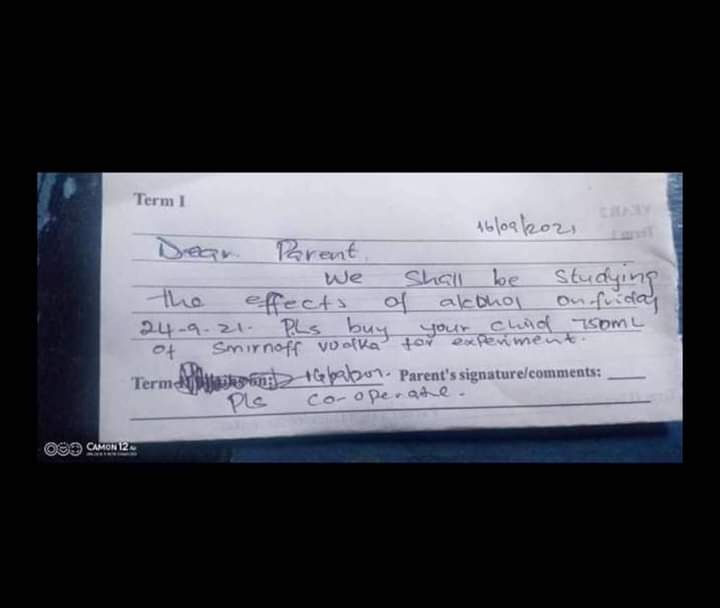 Term I
16/09/2021
Dear Parent,
We Shall be Studying
the effects of alcohol on friday
24-9-21. Pls buy your child 750mL
of Smirnoff vodka for experiment.
Term Parent's signature/comments:
Pls co-operate.
CAMON 12